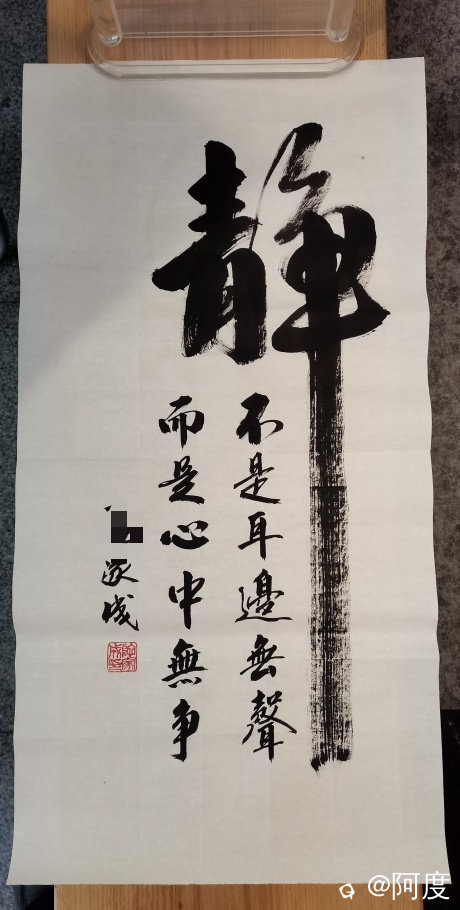 静
不是耳邊無聲
而是心中無争
家成
@阿度